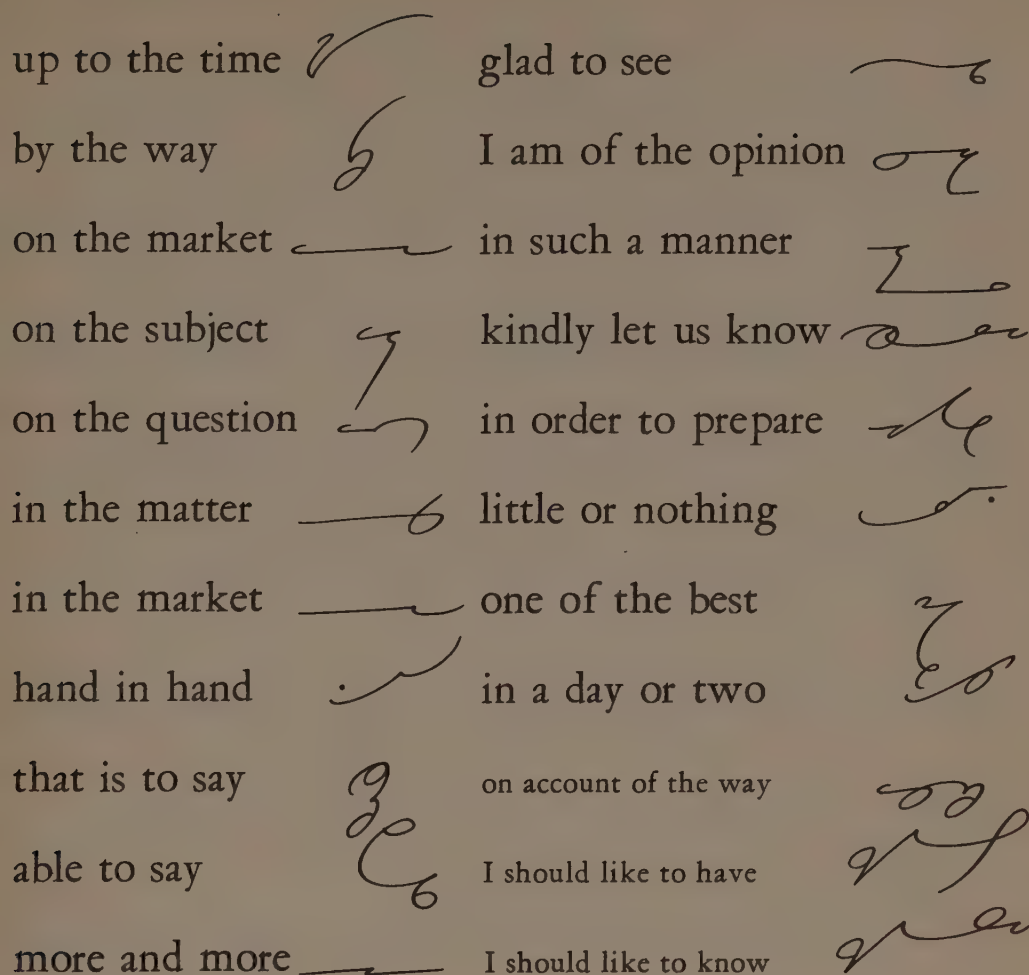 up to the time
by the way
on the market
on the subject
on the question
in the matter
in the market
hand in hand
that is to say
able to say
more and more
glad to see
I am of the opinion
in such a manner
kindly let us know
in order to prepare
little or nothing
one of the best
in a day or two
on account of the way
I should like to have
I should like to know